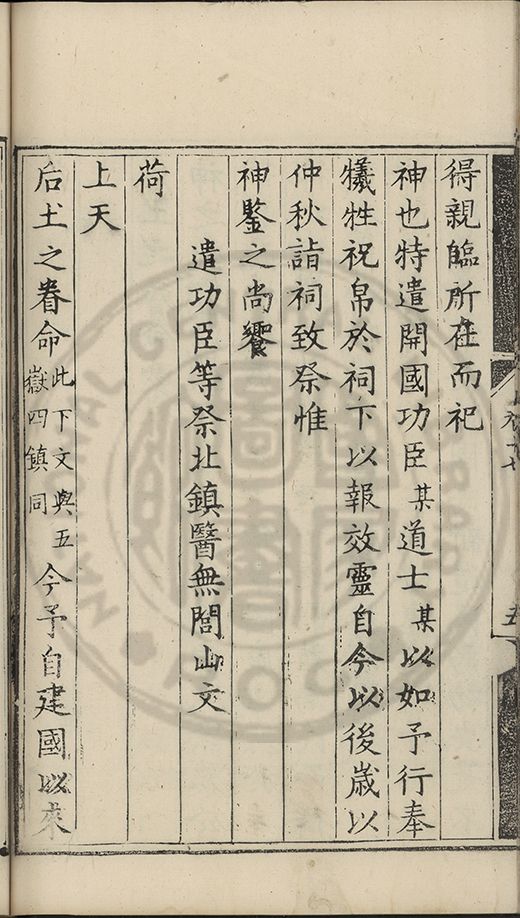 得親臨所在而祀
神也特遣開國功臣某道士某以如予行奉
犧牲祝帛於祠下以報效靈自今以後歲以
仲秋詣祠致祭惟
神鑒之尚饗
遣功臣等祭北鎮醫無閭山文
荷
上天
后土之眷命此下文與五嶽四鎮同今予自建國以來